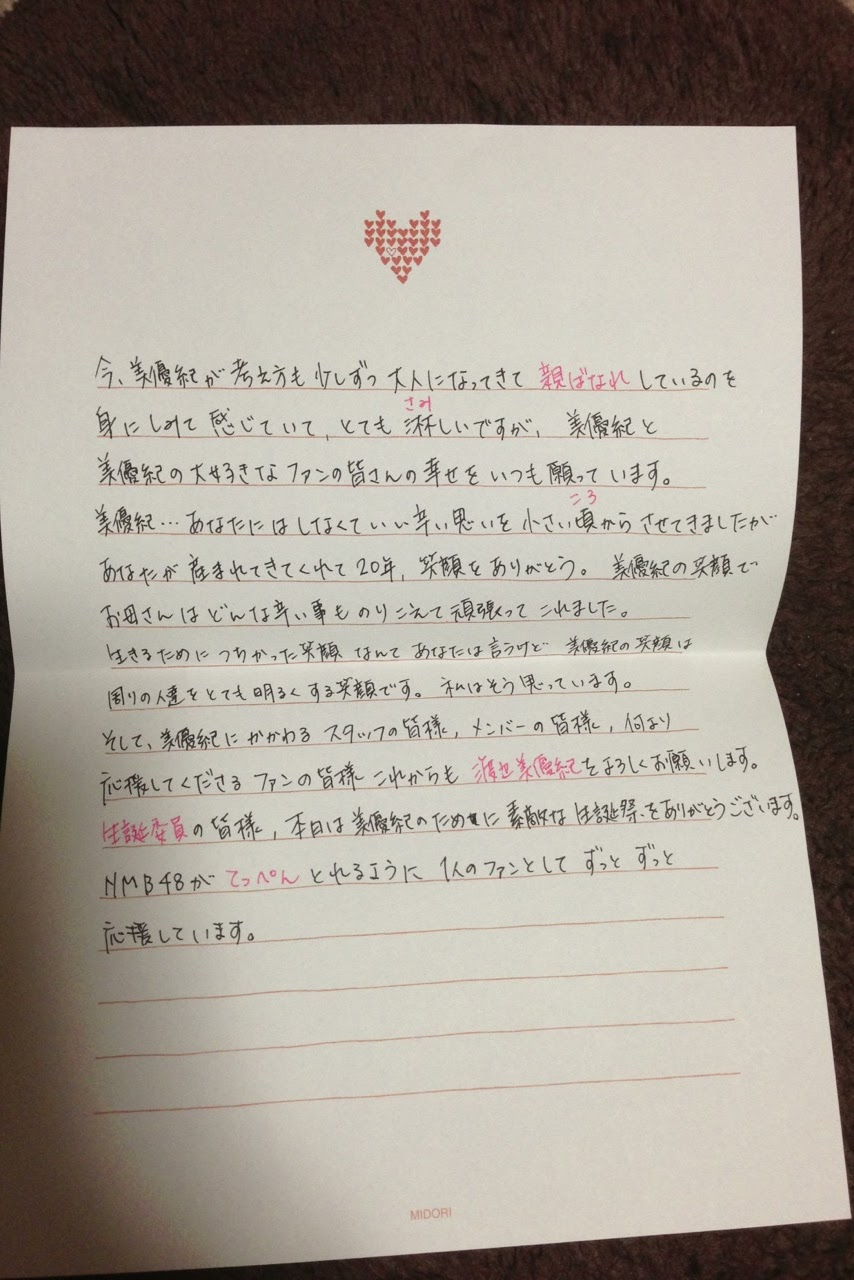 今、美優紀が考え方も少しずつ大人になってきて親ばなれしているのを
さみ
身にしみて感じていて、とても淋しいですが、美優紀と
美優紀の大好きなファンの皆さんの幸せをいつも願っています。
ころ
美優紀…あなたにはしなくていい辛い思いを小さい頃からさせてきましたが
あなたが産まれてきてくれて20年、笑顔をありがとう。美優紀の笑顔で
お母さんはどんな辛い事ものりこえて頑張ってこれました。
生きるためにつちかった笑顔なんてあなたは言うけど美優紀の笑顔は
周りの人達をとても明るくする笑顔です。私はそう思っています。
そして、美優紀にかかわるスタッフの皆様、メンバーの皆様、何より
応援してくださるファンの皆様これからも渡辺美優紀をよろしくお願いします。
生誕委員の皆様、本日は美優紀のために素敵な生誕祭をありがとうございます。
NMB48がてっぺんとれるように1人のファンとしてずっとずっと
応援しています。
MIDORI